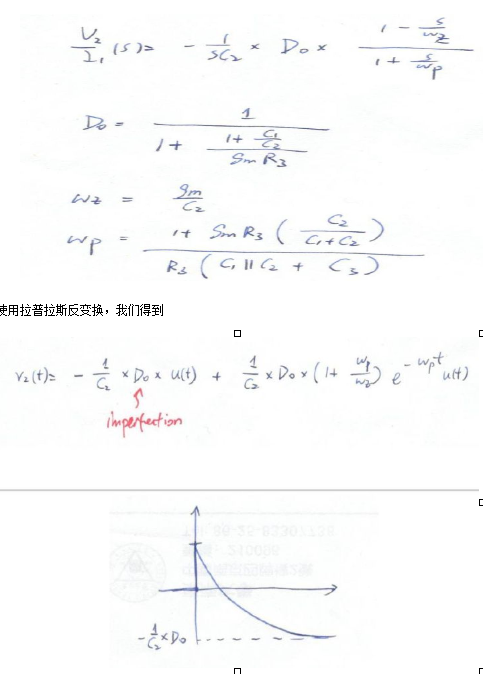 V₂/I₁ (s) = - 1/(sC₂) × D₀ × (1 - s/wz)/(1 + s/wp)
D₀ = 1/(1 + (1 + C₁/C₂)/(gm R₃))
wz = gm/C₂
wp = (1 + gm R₃ (C₂/(C₁+C₂)))/(R₃ (C₁||C₂ + C₃))
使用拉普拉斯反变换，我们得到
V₂(t) = - 1/C₂ × D₀ × u(t) + 1/C₂ × D₀ × (1 + wp/wz) e^(-wp t) u(t)
imperfection
- 1/C₂ × D₀